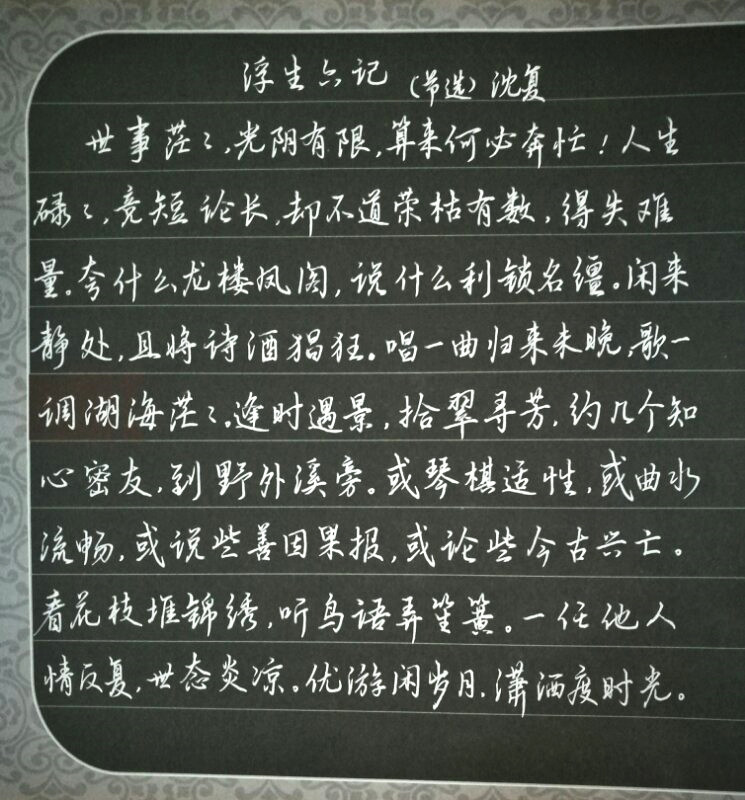 浮生六记 (节选) 沈复
世事茫〻,光阴有限,算来何必奔忙!人生
碌〻,竞短论长,却不道荣枯有数,得失难
量。夸什么龙楼凤阁,说什么利锁名缰。闲来
静处,且将诗酒猖狂。唱一曲归来未晚,歌一
调湖海茫〻。逢时遇景,拾翠寻芳,约几个知
心密友,到野外溪旁。或琴棋适性,或曲水
流畅,或说些善因果报,或论些今古兴亡。
看花枝堆锦绣,听鸟语弄笙簧。一任他人
情反复,世态炎凉。优游闲岁月,潇洒度时光。